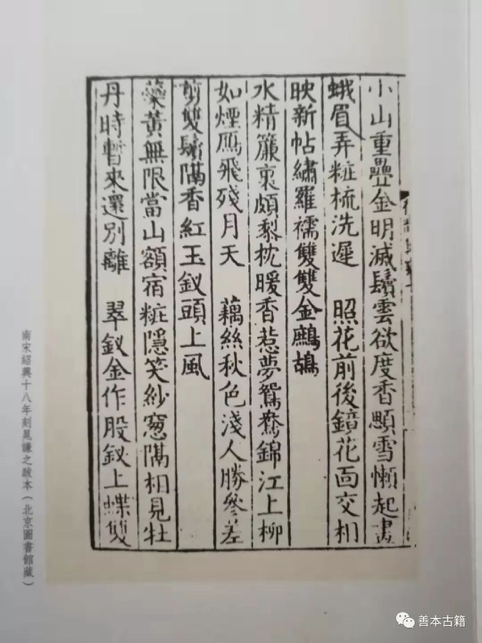 小山重疊金明滅鬢雲欲度香顋雪懶起畫
蛾眉弄粧梳洗遲 照花前後鏡花面交相
映新帖繡羅襦雙雙金鷓鴣
水精簾裏頗黎枕暖香惹夢鴛鴦錦江上柳
如煙鴈飛殘月天 藕絲秋色淺人勝參差
剪雙鬢隔香紅玉釵頭上風
蘂黃無限當山額宿粧隱笑紗窻隔相見牡
丹時暫來還別離 翠釵金作股釵上蝶雙
南宋紹興十八年刻晁謙之跋本（北京圖書館藏）
善本古籍